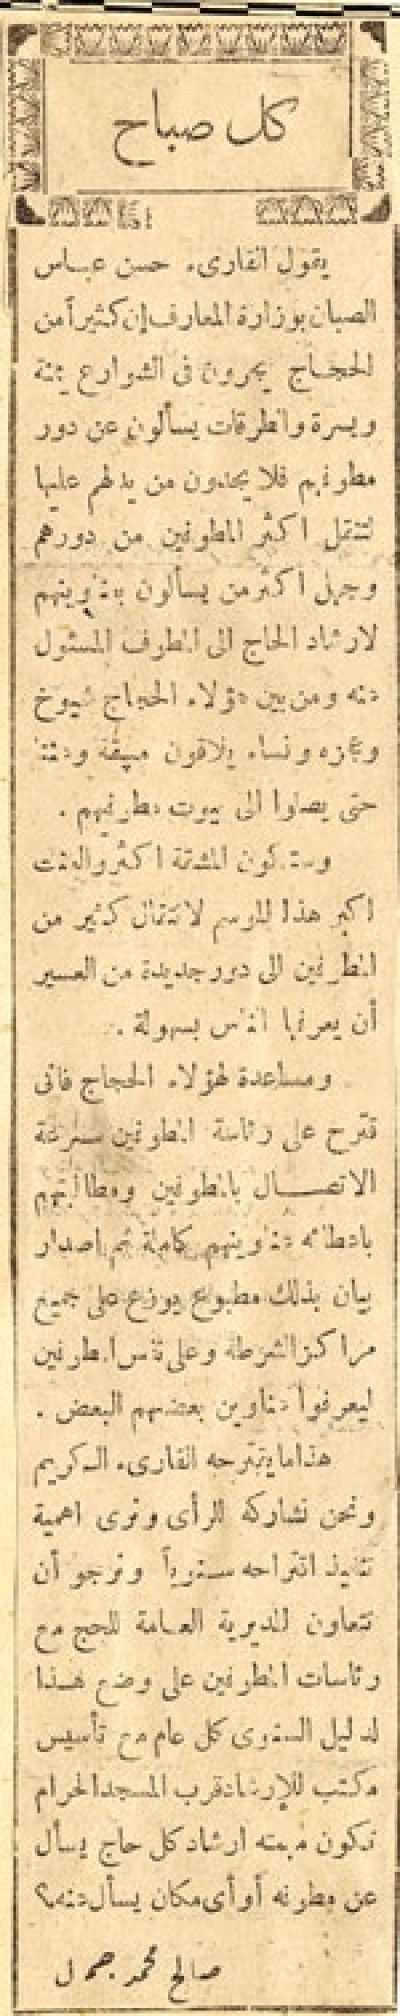 كل صباح
يقول القارىء حسن عباس
الصبان بوزارة المعارف إن كثيراً من
الحجاج يجرون فى الشوارع يمنة
ويسرة والطرقات يسألون عن دور
مطوفيهم فلا يجدون من يدلهم عليها
لتنقل اكثر المطوفين من دورهم
وجهل اكثر من يسألون بعناوينهم
لارشاد الحاج الى المطوف المسئول
عنه ومن بين هؤلاء الحجاج شيوخ
وعجزه ونساء يلاقون مشقة وعنتا
حتى يصلوا الى بيوت مطوفيهم .
وستكون المشقة اكثر والعنت
اكبر هذا الموسم لانتقال كثير من
المطوفين الى دور جديدة من العسير
أن يعرفها الناس بسهولة .
ومساعدة لهؤلاء الحجاج فانى
قترح على رئاسة المطوفين سرعة
الاتصال بالمطوفين ومطالبتهم
باعطائه عناوينهم كاملة ثم اصدار
بيان بذلك مطبوع يوزع على جميع
مراكز الشرطة وعلى نفس المطوفين
ليعرفوا عناوين بعضهم البعض .
هذا ما يقترحه القارىء الكريم
ونحن نشاركه الرأى ونرى اهمية
تنفيذ اقتراحه سنوياً ونرجو أن
تتعاون المديرية العامة للحج مع
رئاسات المطوفين على وضع هذا
لدليل السنوى كل عام مع تأسيس
مكتب للإرشاد قرب المسجد الحرام
تكون مهمته ارشاد كل حاج يسأل
عن مطوفه أو أى مكان يسأل عنه ؟
صالح محمد جمال